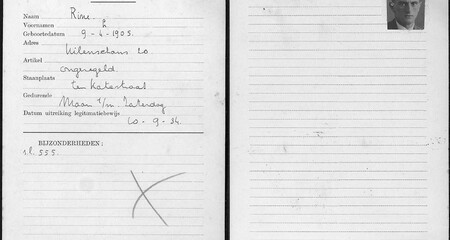 Naam Rine.
Voornamen L.
Geboortedatum 9-4-1905.
Adres Uilenschans 20.
Artikel
ongeregeld.
Staanplaats
ten Katestraat
Gedurende
Maan t/m Zaterdag
Datum uitreiking legitimatiebewijs
20-9-34.
BIJZONDERHEDEN:
r.l. 555.